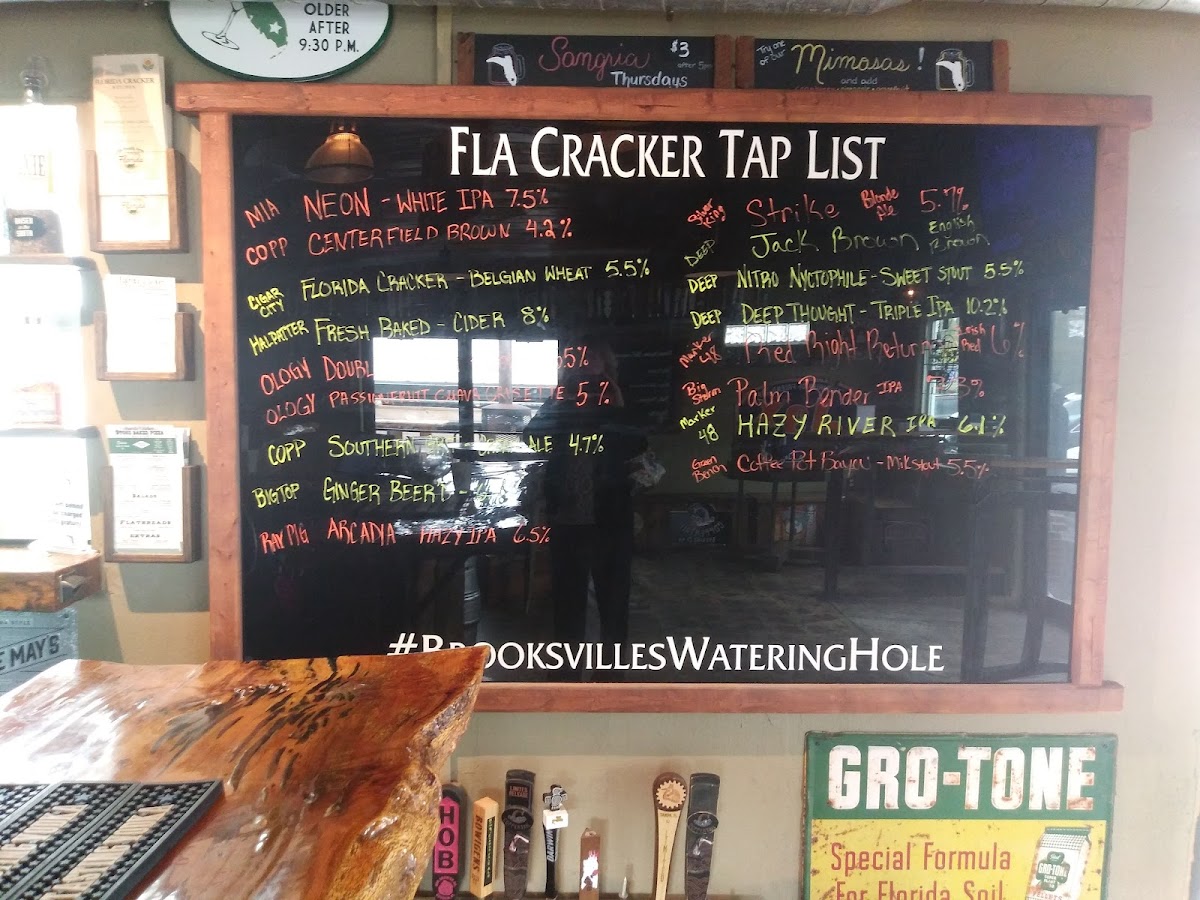 OLDER
AFTER
9:30 P.M.
Sangria $3
Thursdays
Try one
of our
Mimosas!
and add
FLA CRACKER TAP LIST
MIA NEON - WHITE IPA 7.5%
COPP CENTERFIELD BROWN 4.2%
CIGAR CITY FLORIDA CRACKER - BELGIAN WHEAT 5.5%
HALPATTER FRESH BAKED - CIDER 8%
OLOGY DOUBL
OLOGY PASSIONFRUIT GUAVA GRISETTE 5%
COPP SOUTHERN ALE 4.7%
BIGTOP GINGER BEER
RAY MG ARCADIA - HAZY IPA 6.5%
Silver King Strike Blonde Ale 5.7%
DEEP Jack Brown English Brown
DEEP NITRO NYCTOPHILE - SWEET STOUT 5.5%
DEEP DEEP THOUGHT - TRIPLE IPA 10.2%
Marker 48 Red Right Return Irish Red 6%
Big Storm Palm Bender IPA
Marker 48 HAZY RIVER IPA 6.1%
Green Bench Coffee Pot Bayou - Milkstout 5.5%
#BROOKSVILLESWATERINGHOLE
E MAY'S
HOB
GRO-TONE
Special Formula
For Florida Soil
GRO-TONE